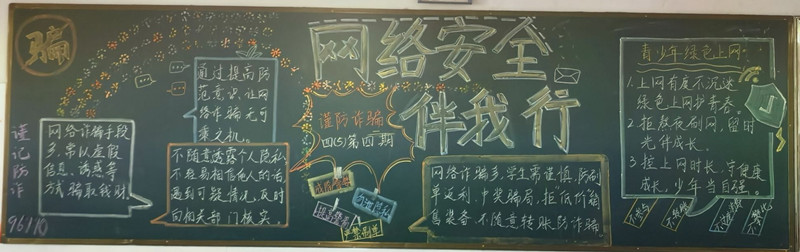 骗
网络安全
伴我行
谨防诈骗
四(5)第四期
谨记防诈
96110
网络诈骗手段
多,常以虚假
信息、诱惑等
方式骗取钱财。
通过提高防
范意识,让网
络诈骗无可
乘之机。
不随意透露个人隐私
不轻易相信他人的话
遇到可疑情况,及时
向相关部门核实。
网络诈骗多,学生需谨慎,防刷
单返利、中奖骗局,拒"低价萌
不随意转账,防诈骗
青少年绿色上网:
1.上网有度不沉迷
绿色上网护青春。
2.拒熬夜刷网,留时
光伴成长。
3.控上网时长,守健康
成长,少年当自强。